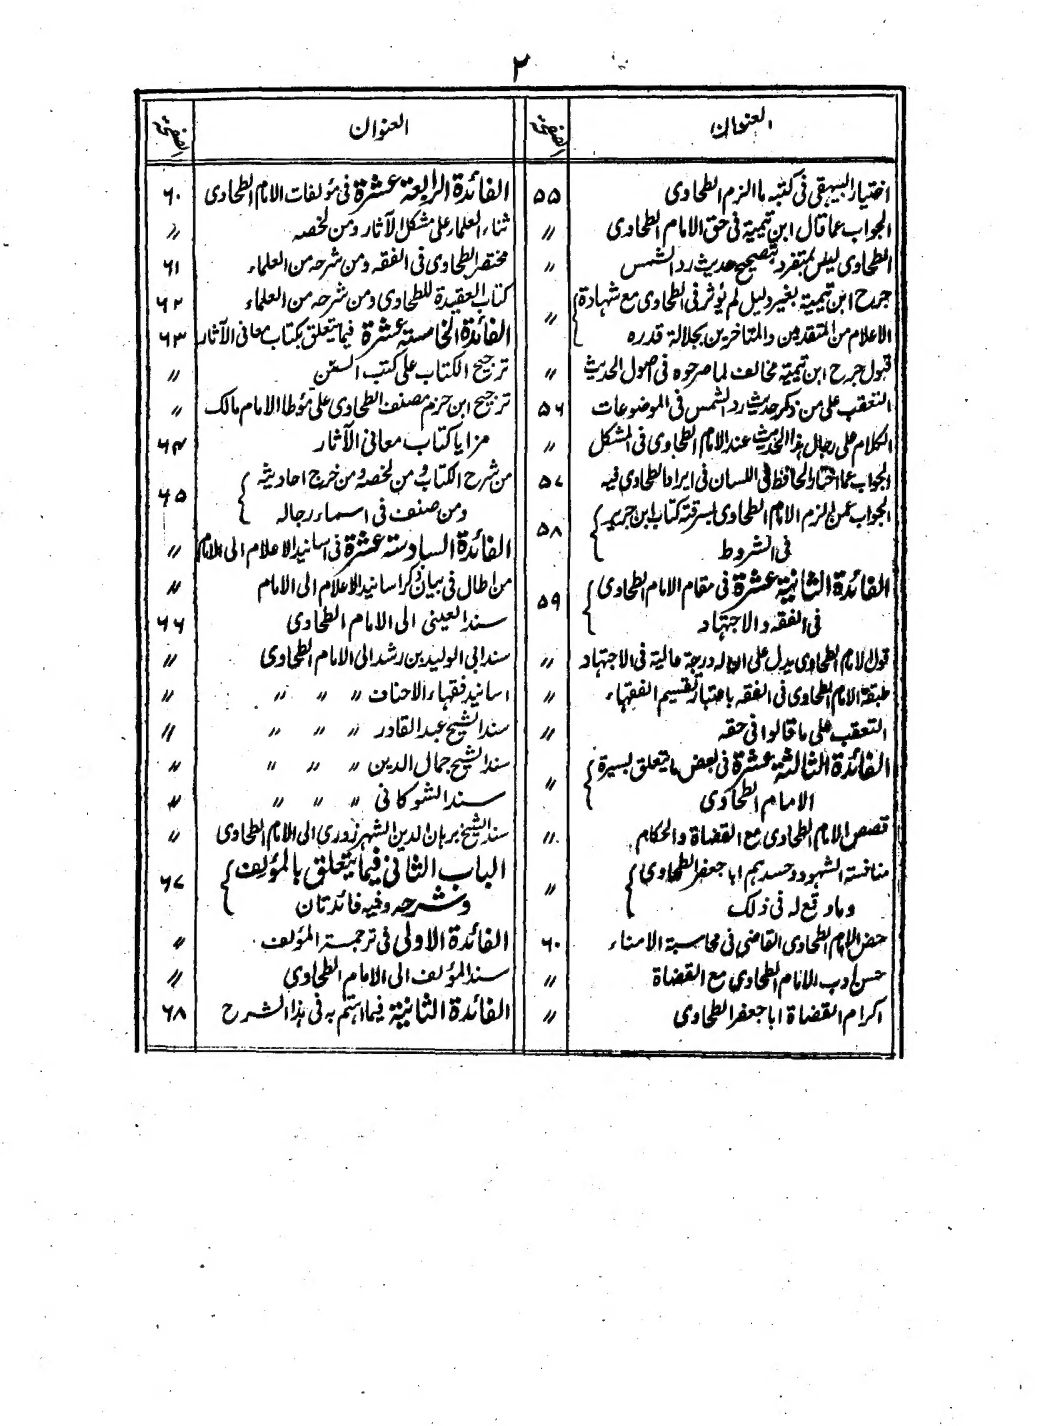 ٢
العنوان الصفحة
اختيار البيهقى فى كتبه ما الزم الطحاوى ۵۵
الجواب عما قال ابن تيمية فى حق الامام الطحاوى 〃
الطحاوى ليس بمتفرد بتصحيح حديث رد الشمس 〃
جرح ابن تيمية بغير دليل لم يؤثر فى الطحاوى مع شهادة
الاعلام من المتقدمين والمتاخرين بجلالة قدره 〃
قبول جرح ابن تيمية مخالف لما صرحوه فى اصول الحديث 〃
التعقب على من ذكر حديث رد الشمس فى الموضوعات ۵۶
الكلام على رجال هذا الحديث عند الامام الطحاوى فى المشكل 〃
الجواب عما اختار الحافظ فى اللسان فى ايراد الطحاوى فيه ۵۷
الجواب عمن الزم الامام الطحاوى بسرقة كتاب ابن جرير
فى الشروط ۵۸
الفائدة الثانية عشرة فى مقام الامام الطحاوى
فى الفقه والاجتهاد ۵۹
قول الامام الطحاوى يدل على ان له درجة عالية فى الاجتهاد 〃
طبقة الامام الطحاوى فى الفقه باعتبار تقسيم الفقهاء 〃
التعقب على ما قالوا فى حقه 〃
الفائدة الثالثة عشرة فى بعض ما يتعلق بسيرة
الامام الطحاوى 〃
قصص الامام الطحاوى مع القضاة والحكام 〃
منافسة الشهود وحسدهم ابا جعفر الطحاوى
وما وقع له فى ذلك 〃
حض الامام الطحاوى القاضى فى محاسبة الامناء ۶۰
حسن ادب الامام الطحاوى مع القضاة 〃
اكرام القضاة ابا جعفر الطحاوى 〃
العنوان الصفحة
الفائدة الرابعة عشرة فى مؤلفات الامام الطحاوى ۶۰
ثناء العلماء على مشكل الآثار ومن لخصه 〃
مختصر الطحاوى فى الفقه ومن شرحه من العلماء ۶۱
كتاب العقيدة للطحاوى ومن شرحه من العلماء ۶۲
الفائدة الخامسة عشرة فيما يتعلق بكتاب معانى الآثار ۶۳
ترجيح الكتاب على كتب السنن 〃
ترجيح ابن حزم مصنف الطحاوى على مؤطا الامام مالك 〃
مزايا كتاب معانى الآثار ۶۴
من شرح الكتاب ومن لخصه ومن خرج احاديثه
ومن صنف فى اسماء رجاله ۶۵
الفائدة السادسة عشرة فى اسانيد الاعلام الى الامام 〃
من اطال فى بيان ذكر اسانيد الاعلام الى الامام 〃
سند العينى الى الامام الطحاوى ۶۶
سند ابى الوليد بن رشد الى الامام الطحاوى 〃
اسانيد فقهاء الاحناف 〃 〃 〃 〃
سند الشيخ عبد القادر 〃 〃 〃 〃
سند الشيخ جمال الدين 〃 〃 〃 〃
سند الشوكانى 〃 〃 〃 〃
سند الشيخ برهان الدين الشهرزورى الى الامام الطحاوى 〃
الباب الثانى فيما يتعلق بالمؤلف
وشرحه وفيه فائدتان ۶۷
الفائدة الاولى فى ترجمة المؤلف 〃
سند المؤلف الى الامام الطحاوى 〃
الفائدة الثانية فيما اهتم به فى هذا الشرح ۶۸